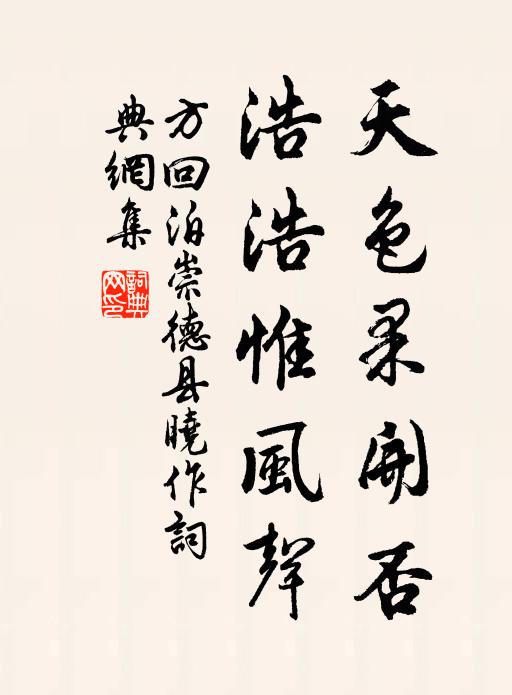 天色果開否
浩浩惟風聲
方回泊崇德县曉作詞
典網集
詞典
网印